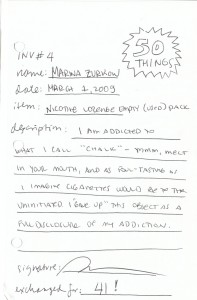 50
THINGS
INV # 4
name: MARINA ZURKOW
date: MARCH 1, 2009
item: NICOTINE LOZENGE EMPTY (USED) PACK
description: I AM ADDICTED TO
WHAT I CALL "CHALK" - MMM, MELT
IN YOUR MOUTH, AND AS FOUL-TASTING AS
I IMAGINE CIGARETTES WOULD BE TO THE
UNINITIATED. I "GIVE UP" THIS OBJECT AS A
FULL DISCLOSURE OF MY ADDICTION.
signature:
exchanged for: 41!